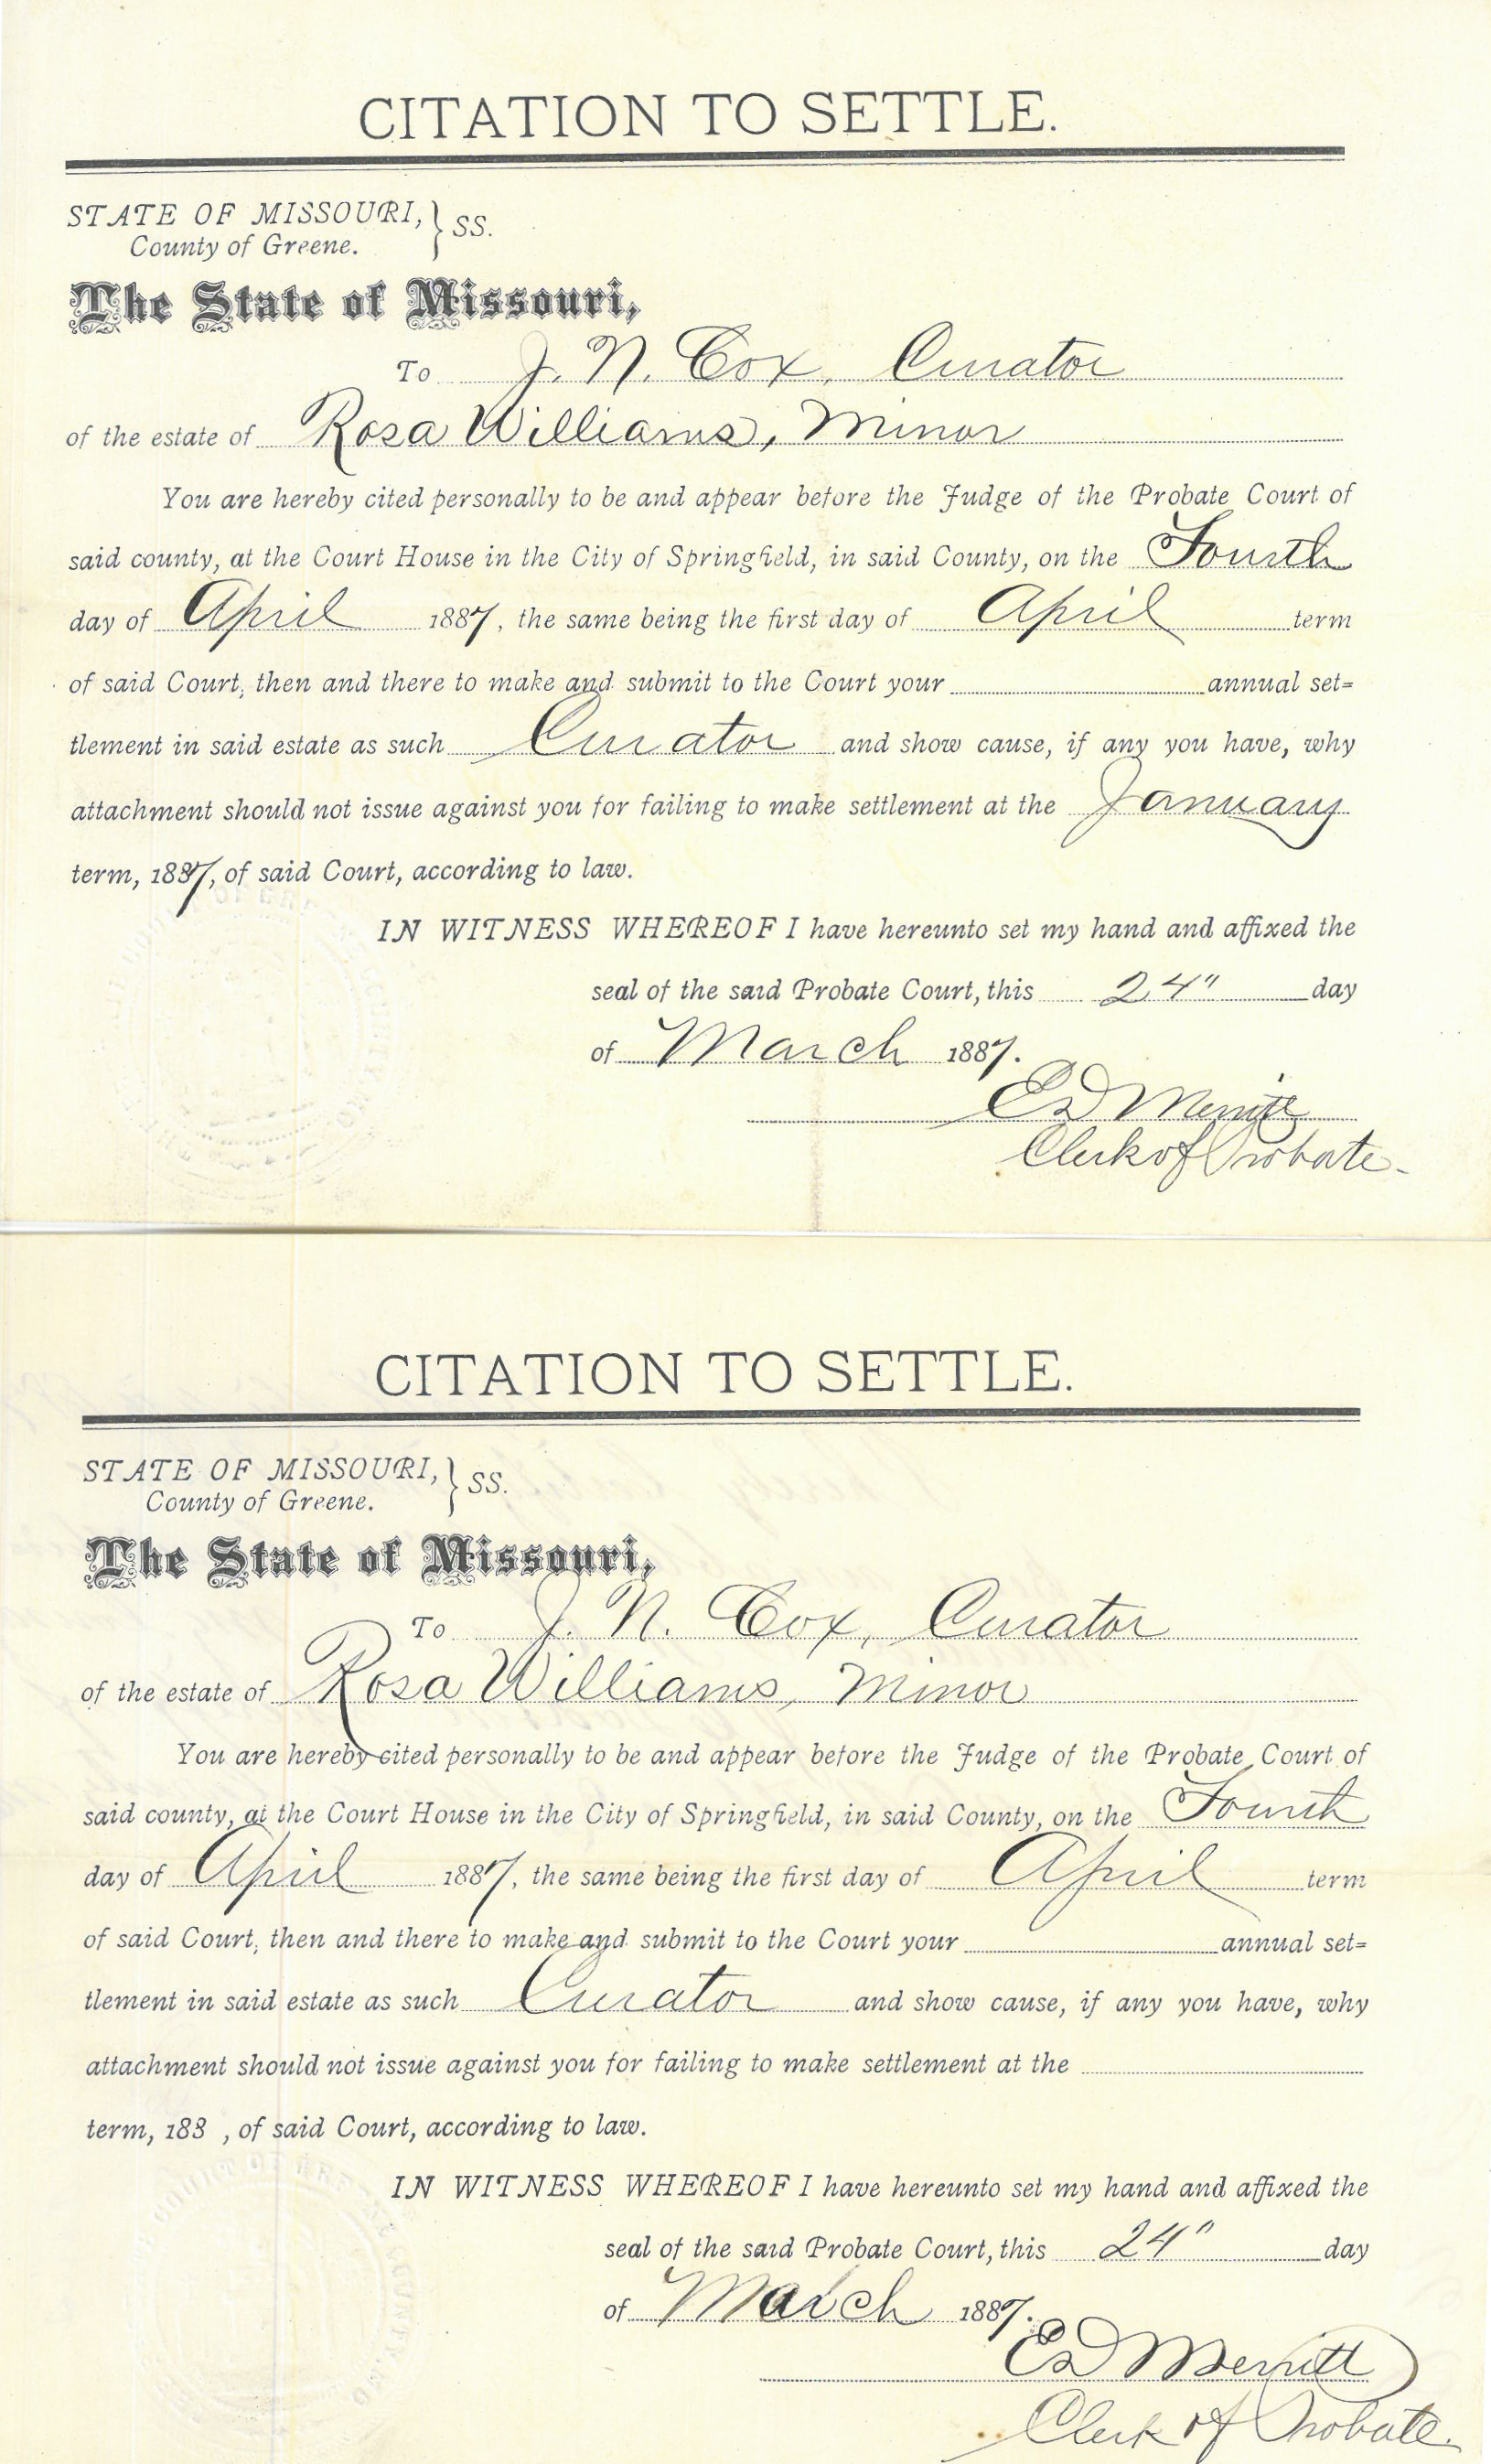 CITATION TO SETTLE.
STATE OF MISSOURI, } SS.
County of Greene.
The State of Missouri,
To J. N. Cox, Curator
of the estate of Rosa Williams, Minor
You are hereby cited personally to be and appear before the Judge of the Probate Court of
said county, at the Court House in the City of Springfield, in said County, on the Fourth
day of April 1887, the same being the first day of April term
of said Court, then and there to make and submit to the Court your annual set=
tlement in said estate as such Curator and show cause, if any you have, why
attachment should not issue against you for failing to make settlement at the January
term, 1887, of said Court, according to law.
IN WITNESS WHEREOF I have hereunto set my hand and affixed the
seal of the said Probate Court, this 24" day
of March 1887.
Ed Merritt
Clerk of Probate.
CITATION TO SETTLE.
STATE OF MISSOURI, } SS.
County of Greene.
The State of Missouri,
To J. N. Cox, Curator
of the estate of Rosa Williams, Minor
You are hereby cited personally to be and appear before the Judge of the Probate Court of
said county, at the Court House in the City of Springfield, in said County, on the Fourth
day of April 1887, the same being the first day of April term
of said Court, then and there to make and submit to the Court your annual set=
tlement in said estate as such Curator and show cause, if any you have, why
attachment should not issue against you for failing to make settlement at the
term, 188 , of said Court, according to law.
IN WITNESS WHEREOF I have hereunto set my hand and affixed the
seal of the said Probate Court, this 24" day
of March 1887.
Ed Merritt
Clerk of Probate.